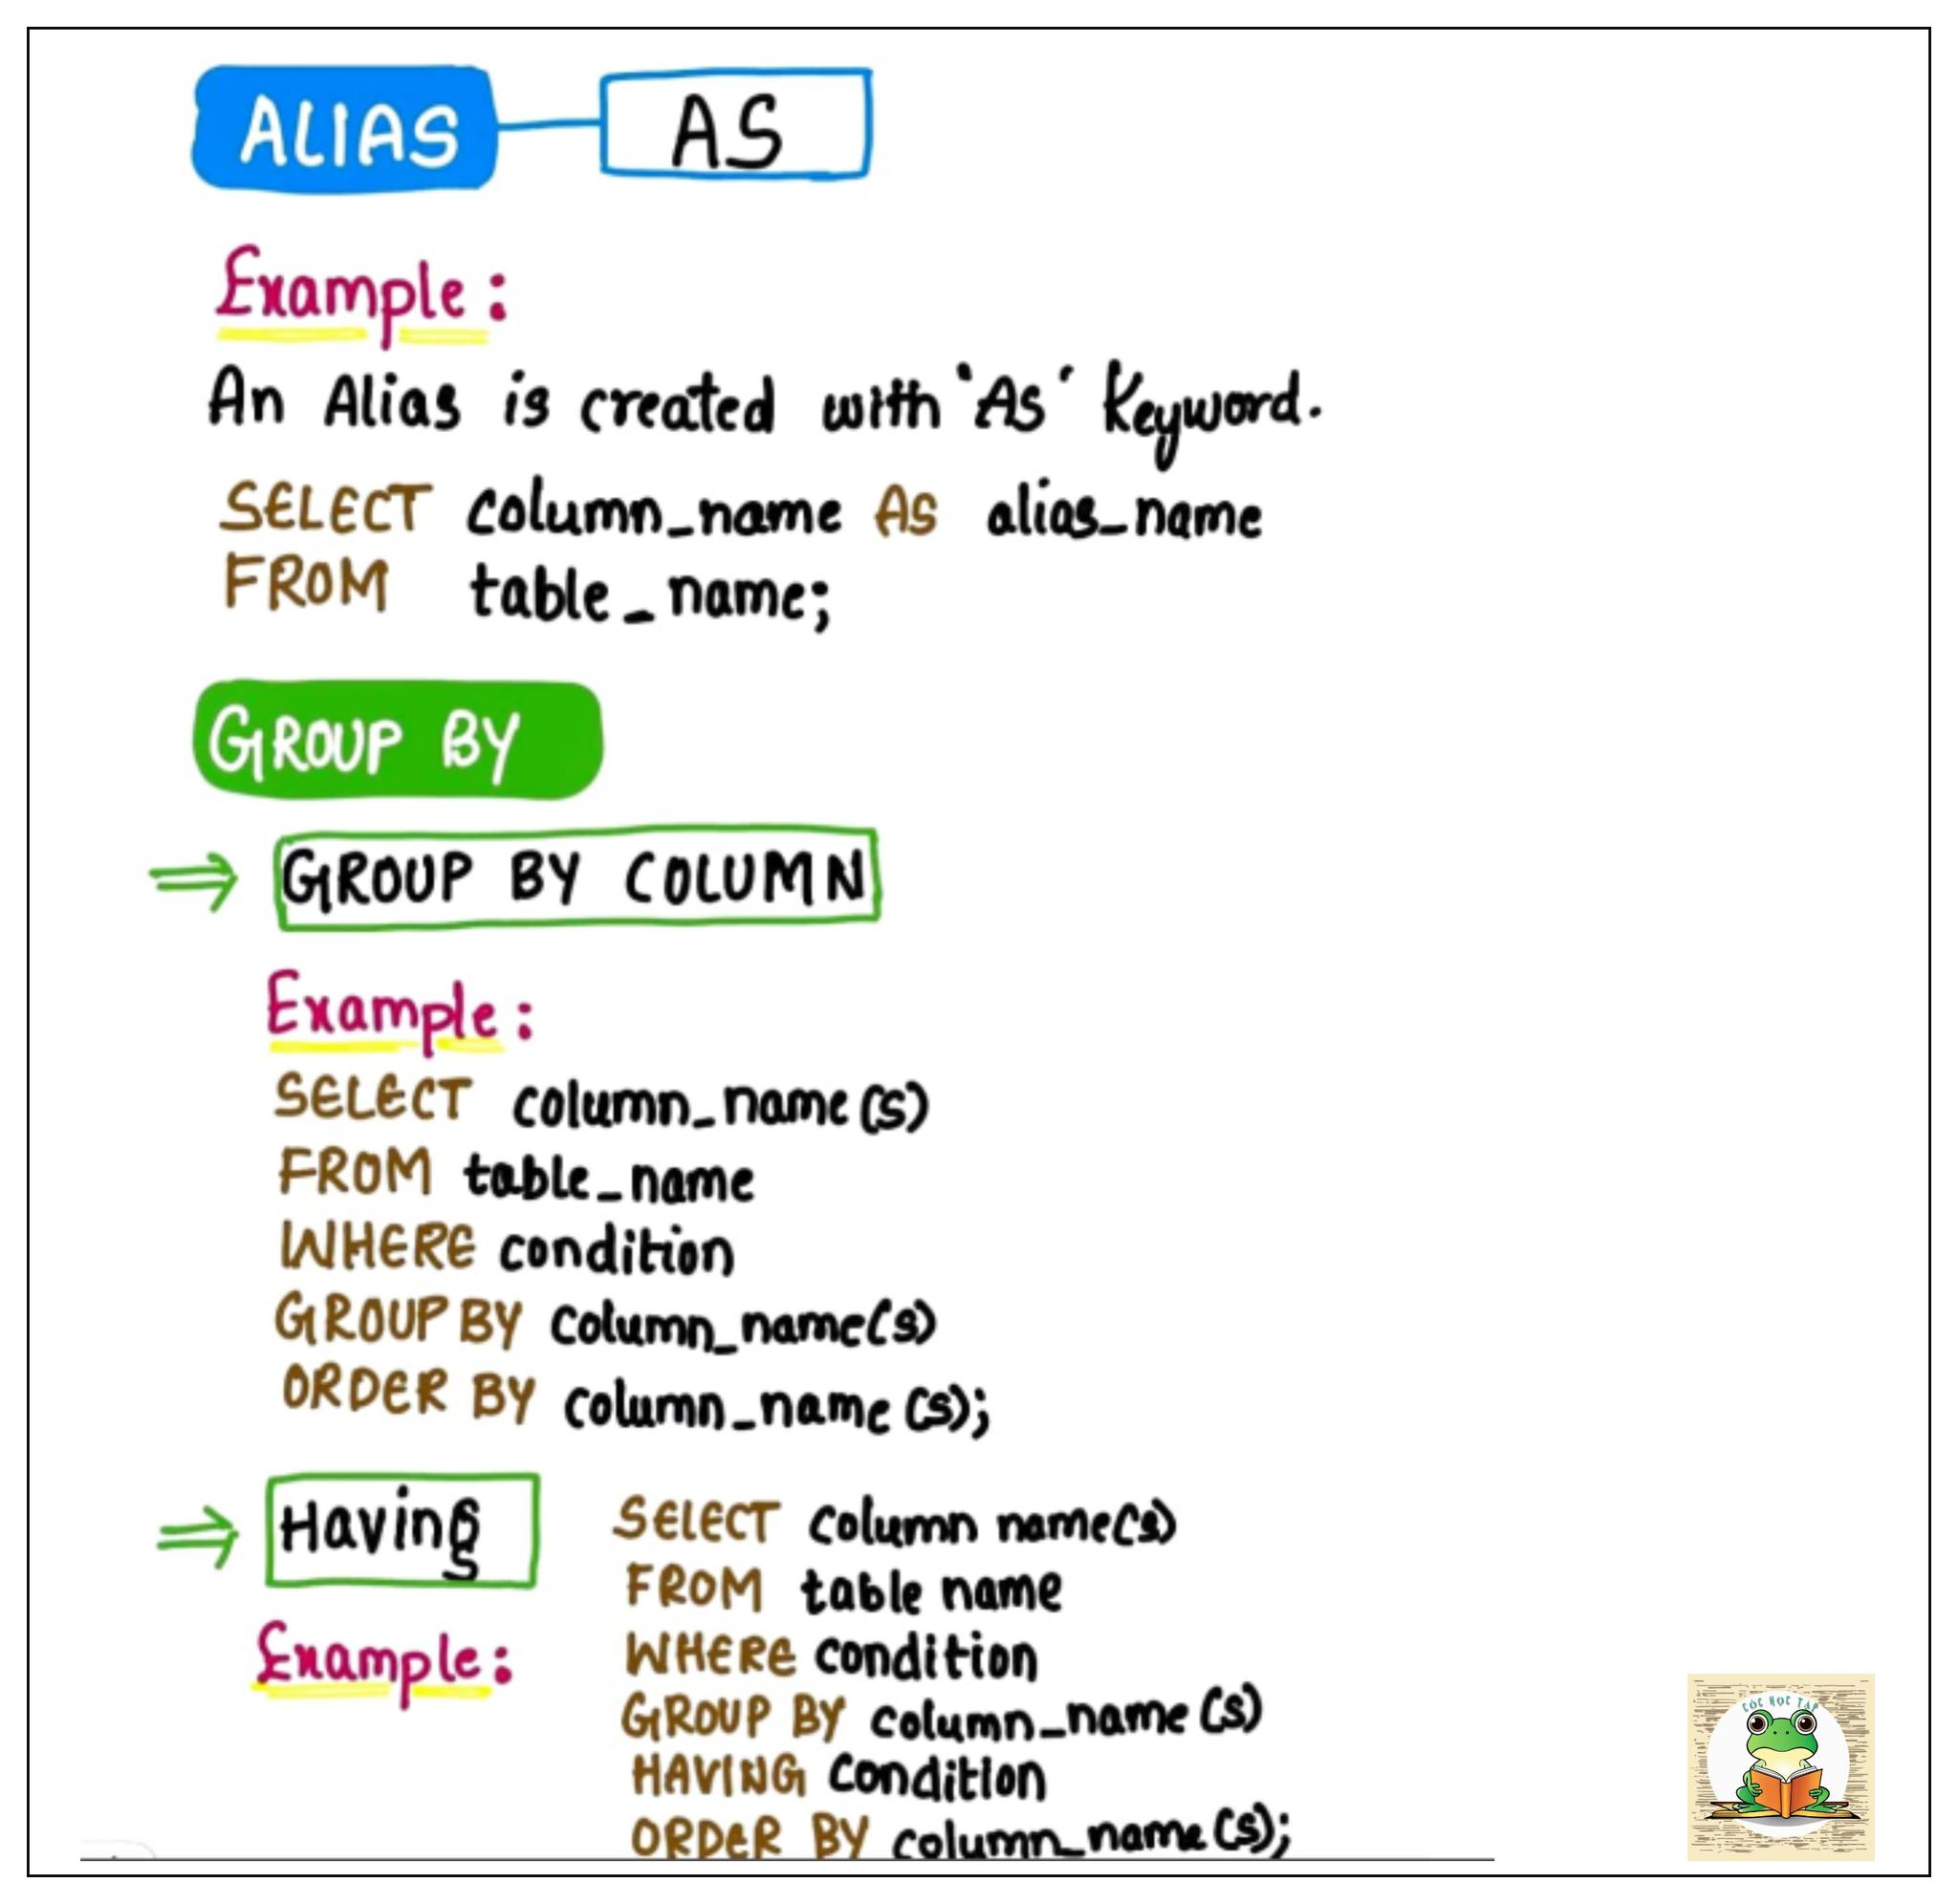 ALIAS AS
Example:
An Alias is created with 'As' Keyword.
SELECT column_name As alias_name
FROM table_name;
GROUP BY
⇒ GROUP BY COLUMN
Example:
SELECT column_name(s)
FROM table_name
WHERE condition
GROUP BY column_name(s)
ORDER BY column_name(s);
⇒ Having
Example:
SELECT column name(s)
FROM table name
WHERE condition
GROUP BY column_name(s)
HAVING condition
ORDER BY column_name(s);
CÓC HỌC TẬP